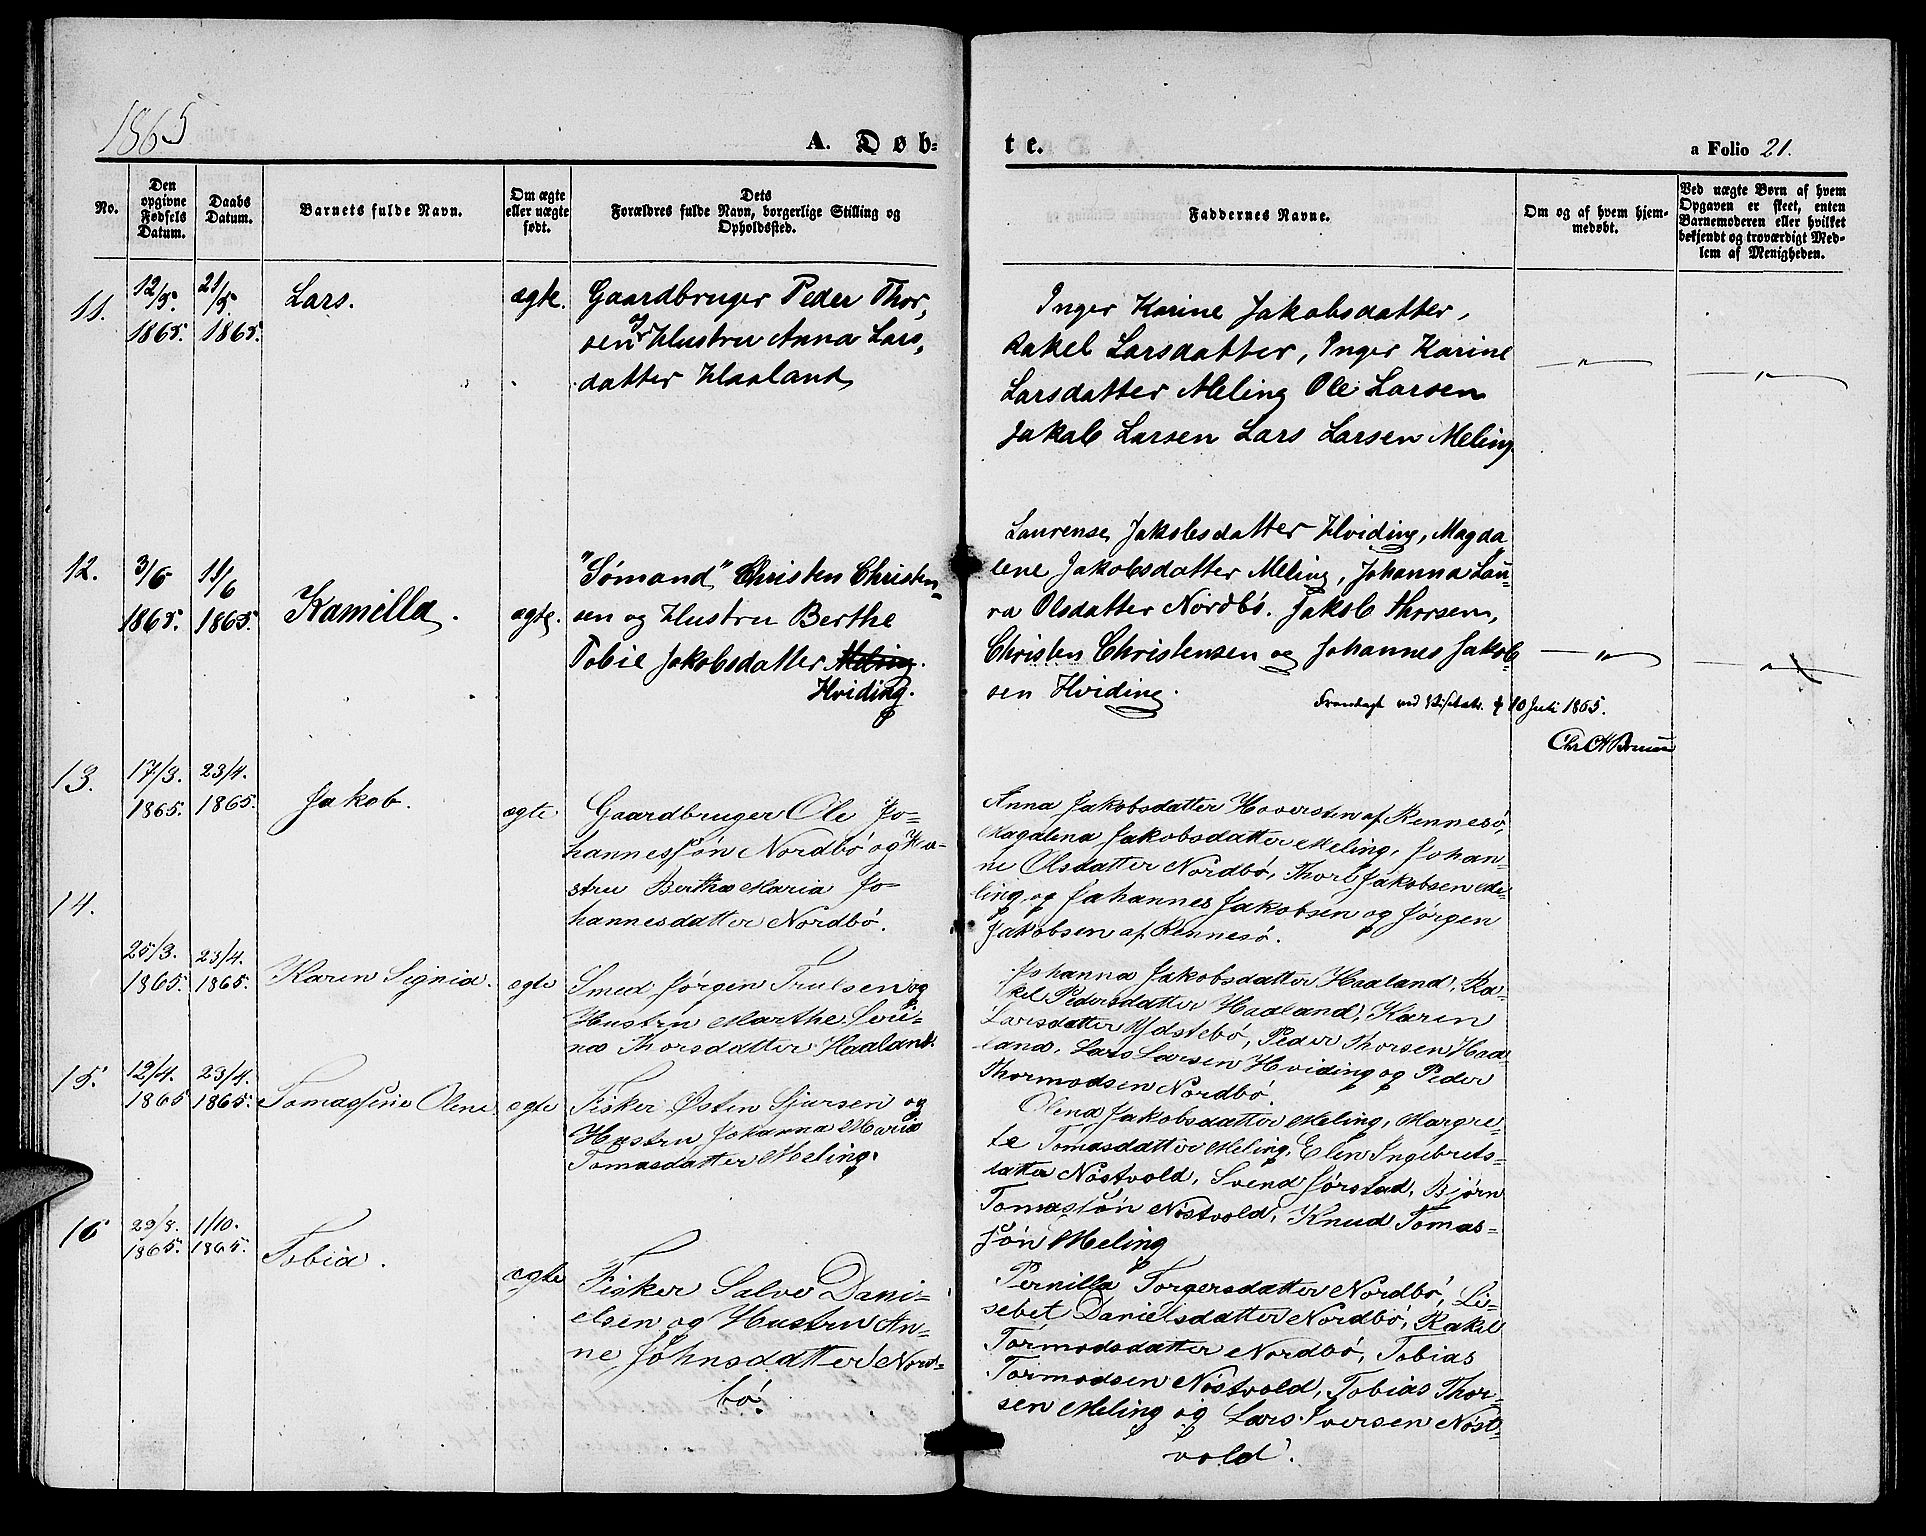 1865
A. Døb-
te.
a Folio 21.
No.
Den
opgivne
Fødsels
Datum.
Daabs
Datum.
Barnets fulde Navn.
Om ægte
eller uægte
født.
Dets
Forældres fulde Navn, borgerlige Stilling og
Opholdssted.
Faddernes Navne.
Om og af hvem hjem-
medøbt.
Ved uægte Børn af hvem
Opgaven er skeet, enten
Barnemoderen eller hvilket
bekjendt og troværdigt Med-
lem af Menigheden.
11.
12/5.
1865.
21/5.
1865.
Lars.
ægte.
Gaardbruger Peder Thor,
sen og Hustru Anna Lars,
datter Haaland
Inger Karine Jakobsdatter,
Rakel Larsdatter, Inger Karine
Larsdatter Meling Ole Larsen
Jakob Larsen Lars Larsen Meling
— " —
— " —
12.
3/6
1865.
11/6
1865.
Kamilla.
ægte.
"Sømand" Christen Christen-
sen og Hustru Berthe
Tobie Jakobsdatter Meling.
Hviding.
Laurense Jakobsdatter Hviding, Magda
lene Jakobsdatter Meling, Johanna Lau-
ra Olsdatter Nordbö. Jakob Thorsen,
Christen Christensen og Johannes Jakob-
sen Hviding.
— " —
— " —
Fremlagt ved Visitats. d 10 Juli 1865.
13.
17/3.
1865.
23/4.
1865.
Jakob.
ægte
Gaardbruger Ole Jo-
hannessön Nordbö og Hu-
stru Bertha Maria Jo-
hannesdatter Nordbö.
Anna Jakobsdatter Hoversten af Rennesö,
Magdlena Jakobsdatter Meling, Johan-
ne Olsdatter Nordbö, Thore Jakobsen Me-
ling og Johannes Jakobsen og Jörgen
Jakobsen af Rennesö.
14.
25/3.
1865.
23/4.
1865.
Karen Signia.
ægte
Smed Jörgen Trulsen og
Hustru Marthe Seri-
na Thorsdatter Haaland.
Johanna Jakobsdatter Haaland, Ra-
kel Pedersdatter Haaland, Karen
Larsdatter Ydstebö, Peder Thorsen Haa-
land, Lars Larsen Hviding og Peder
Thormodsen Nordbö.
15.
12/4.
1865
23/4.
1865.
Tomassine Olene
ægte
Fisker Østen Sjursen og
Hustru Johanna Maria
Tomasdatter Meling.
Olena Jakobsdatter Meling, Margre-
te Tomasdatter Meling, Elen Ingebrets-
datter Nöstvold, Svend Jörstad, Bjørn
Tomassön Nöstvold, Knud Tomas-
sön Meling
16
29/8.
1865.
1/10.
1865.
Tobia.
ægte
Fisker Salve Dani-
elsen og Hustru An-
ne Johnsdatter Nord-
bö.
Pernilla Torgersdatter Nordbö, Li-
sebet Danielsdatter Nordbö, Rakel
Tormodsdatter Nordbö, Tobias
Tormodsen Nöstvold, Tobias Thor-
sen Meling og Lars Iversen Nöst-
vold.